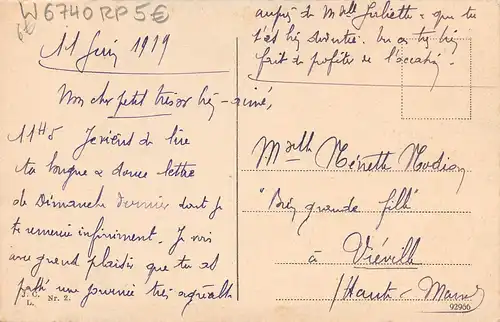 W6740RP5€
6€
11 Juin 1919
Mon cher petit trésor bien-aimé,
11H5 Je viens de lire
ta longue & douce lettre
de Dimanche dernier dont je
te remercie infiniment. Je vois
avec grand plaisir que tu as
passé une journée très agréable
J. C.
L. Nr. 2.
auprès de Mlle Juliette & que tu
t'es bien
fait de profiter de l'occasion.
Mlle
"Bien grande fille"
à Viéville
(Haute-Marne)
92966